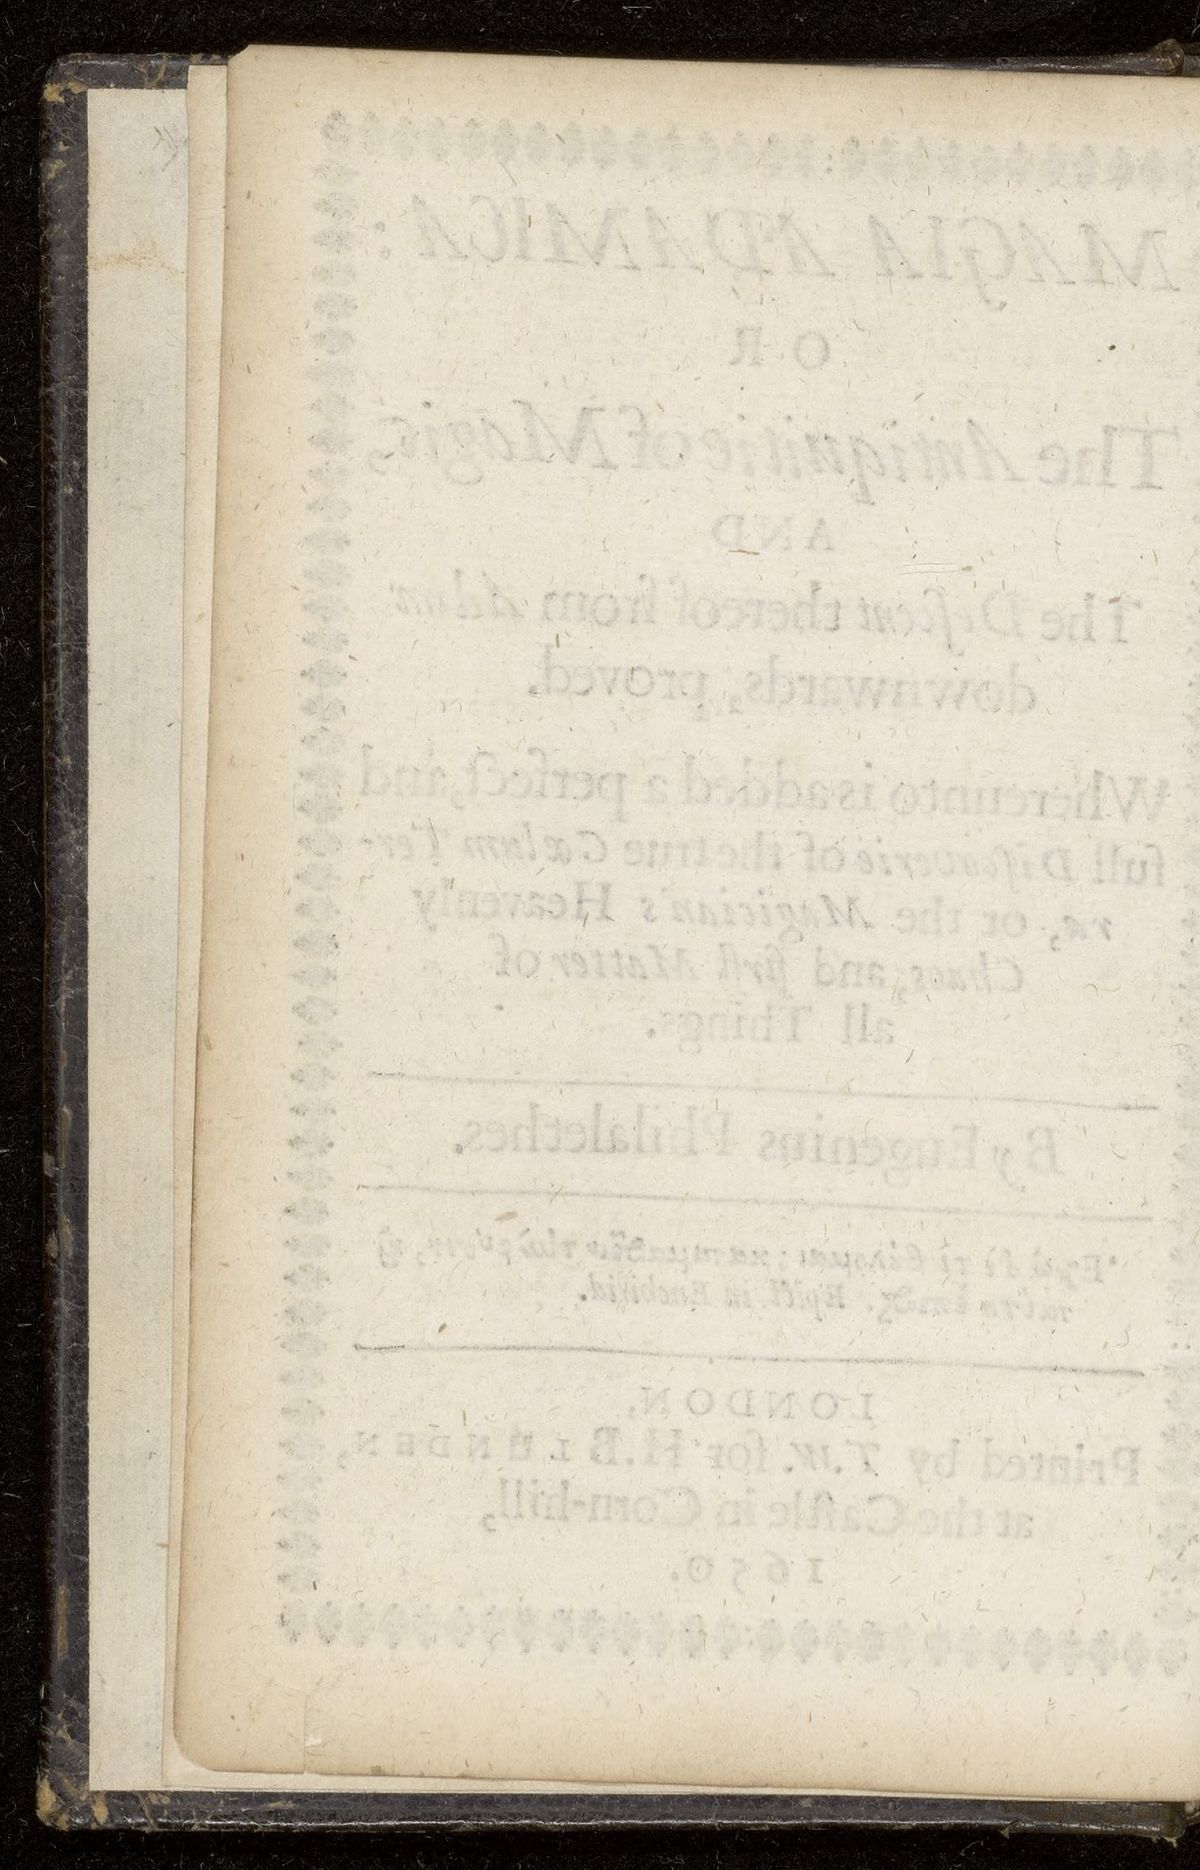 MAGIA ADAMICA:
OR
The Antiquitie of Magic,
AND
The Deſcent thereof from Adam
downwards, proved.
Whereunto is added a perfect, and
full Diſcoverie of the true Cœlum Ter-
ræ, or the Magician's Heavenly
Chaos, and firſt Matter of
all Things.
By Eugenius Philalethes.
Epict. in Enchirid.
LONDON,
Printed by T.W. for H.BLUNDEN,
at the Caſtle in Corn-hill,
1650.